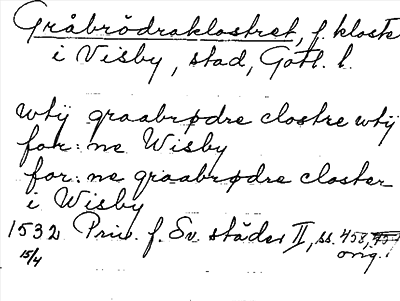 Gråbrödraklostret, f. kloster
i Visby, stad, Gotl. l.
wtÿ graabrødre clostre wtÿ
for: ne Wisby
for: ne graabrødre closter
i Wisby
1532 Priv. f. Sv. städer II, ss. 458, 459
15/4 orig.